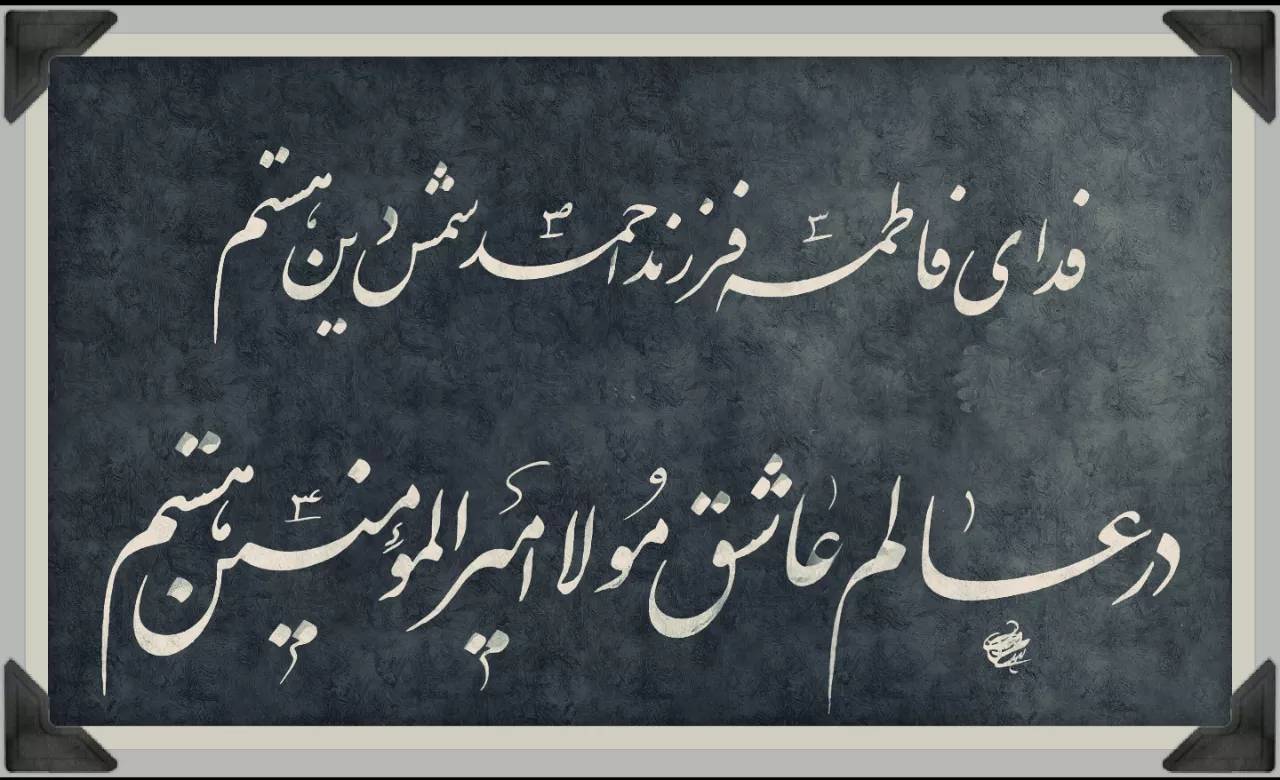 فدای فاطمه س فرزند احمد ص شمس دین هستم
در عالم عاشق مولا امیرالمؤمنین ع هستم